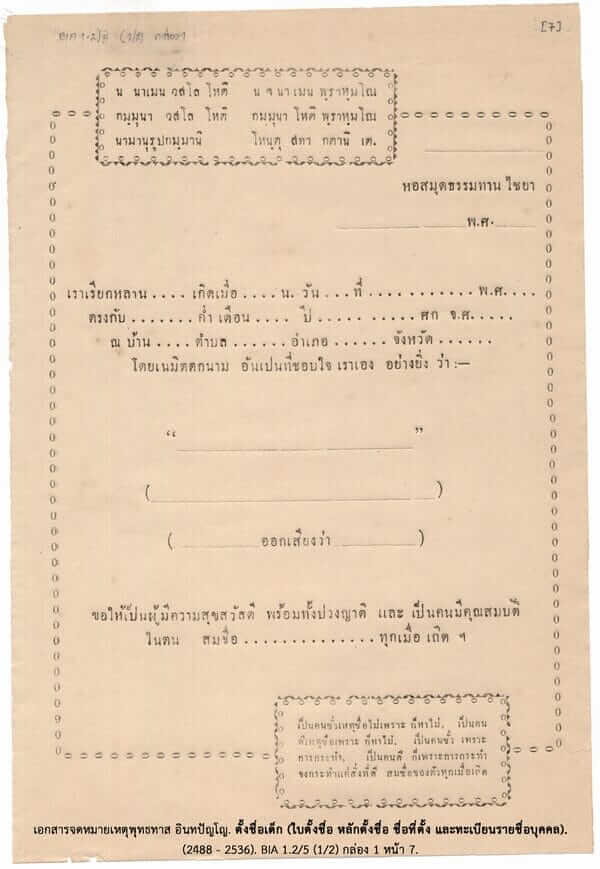 BIA 1.2/5 (1/2) กล่อง 1
[7]
น นาเมน วสโล โหติ น จ นาเมน พฺราหฺมโณ
กมฺมุนา วสโล โหติ กมฺมุนา โหติ พฺราหฺมโณ
นามานุรูปกมฺมานิ โหนฺตุ สทา กตานิ เต.
หอสมุดธรรมทาน ไชยา
พ.ศ.
เราเรียกหลาน .... เกิดเมื่อ .... น. วัน ...ที่ ........... พ.ศ. ....
ตรงกับ ....... ค่ำ เดือน .... ปี ........... ศก จ.ศ. .....
ณ บ้าน .... ตำบล ...... อำเภอ ...... จังหวัด ......
โดยเนมิตตกนาม อันเปนที่ชอบใจ เราเอง อย่างยิ่ง ว่า :—
“ ”
( )
( ออกเสียงว่า )
ขอให้เป็นผู้มีความสุขสวัสดี พร้อมทั้งปวงญาติ และ เป็นคนมีคุณสมบัติ
ในตน สมชื่อ ............... ทุกเมื่อ เถิด ฯ
เป็นคนชั่วเหตุชื่อไม่เพราะ ก็หาไม้. เป็นคน
ดีเหตุชื่อเพราะ ก็หาไม้. เป็นคนชั่ว เพราะ
การกระทำ, เป็นคนดี ก็เพราะการกระทำ
จงกระทำแต่สิ่งที่ดี สมชื่อของตัวทุกเมื่อเถิด
เอกสารจดหมายเหตุพุทธทาส อินทปัญโญ. ตั้งชื่อเด็ก (ใบตั้งชื่อ หลักตั้งชื่อ ชื่อที่ตั้ง และทะเบียนรายชื่อบุคคล).
(2488 - 2536). BIA 1.2/5 (1/2) กล่อง 1 หน้า 7.